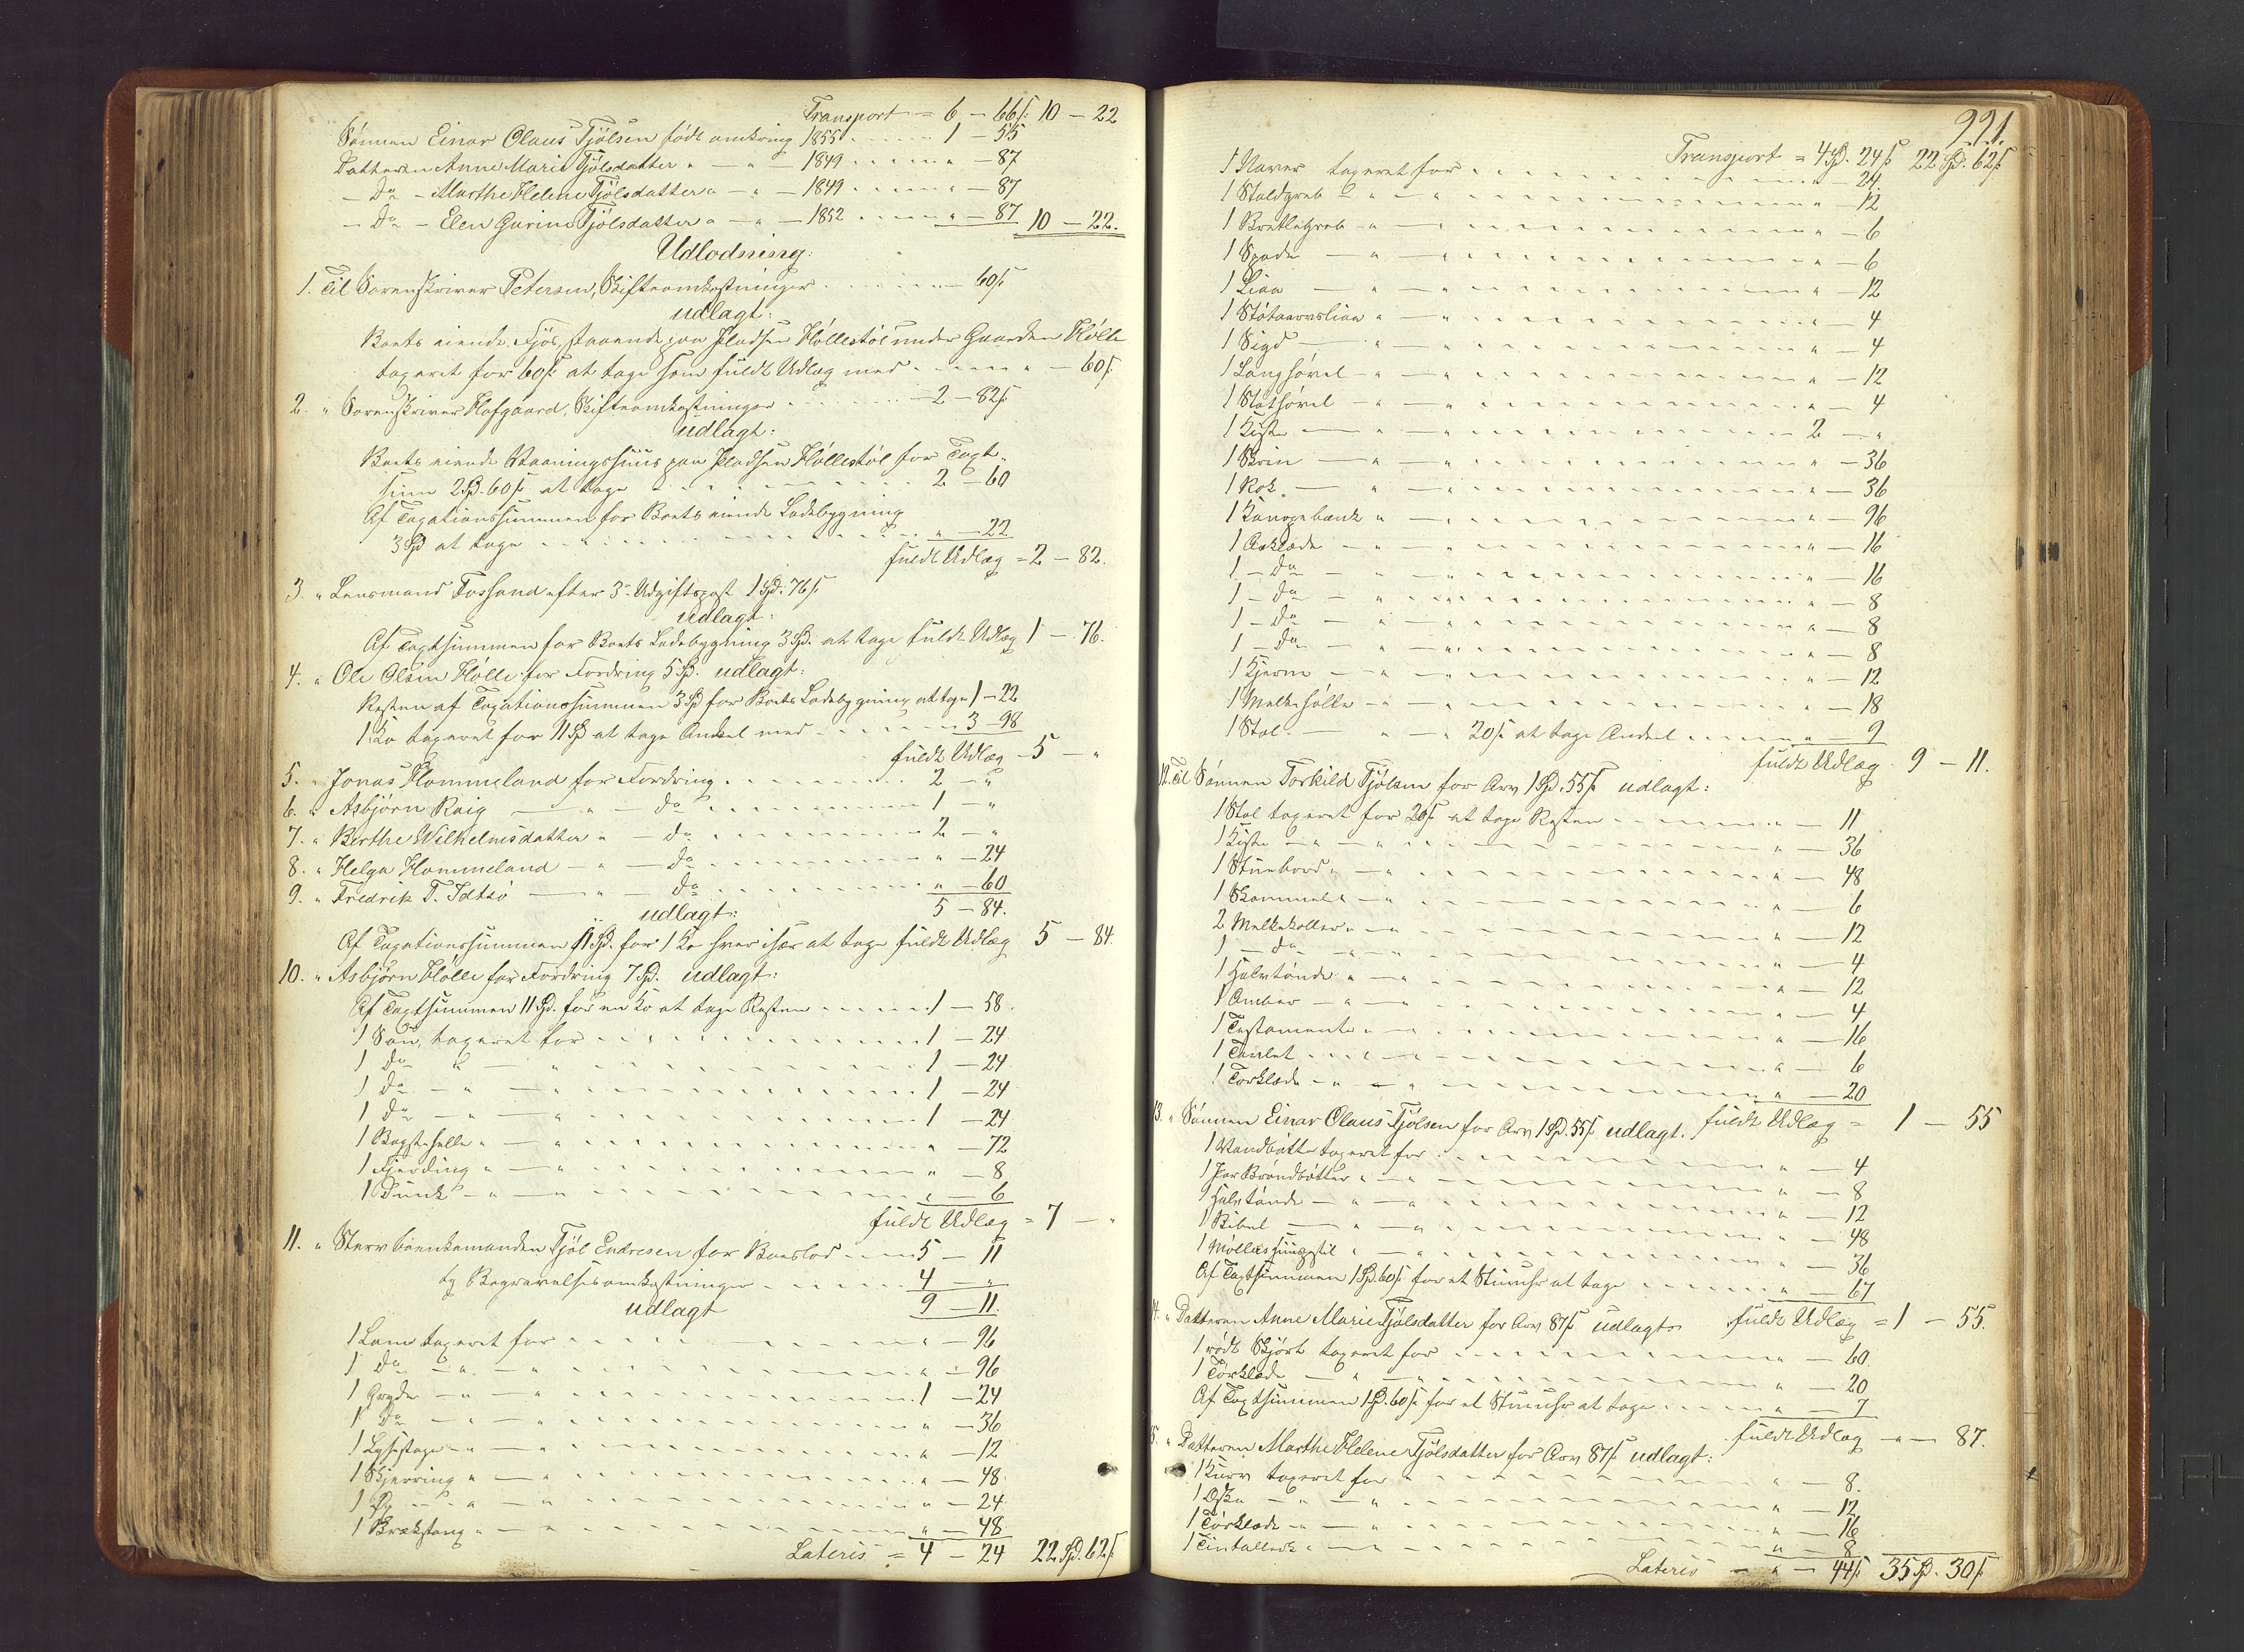 Transport = 6 – 66 ſ. 10 – 22
Sønnen Einar Olaus Tjølsen født omkring 1855 . . . 1 – 55
Datteren Anne Marie Tjølsdatter " — " 1849 . . . " – 87
– Do – Marthe Helene Tjølsdatter " – " – 1849 . . . " – 87
– Do – Elen Gurine Tjølsdatter " – " – 1852 . . . " – 87 10 – 22.
Udlodning:
1. Til Sorenskriver Petersen, Skifteomkostninger . . . 60 ſ
udlagt:
Boets eiende Fjøs, staaende paa Pladsen Høllestøl under Gaarden Hølle
taxeret for 60 ſ at tage som fuldt Udlæg med . . . " – 60 ſ
2. " Sorenskriver Hofgaard, Skifteomkostninger . . . 2 – 82 ſ
udlagt:
Boets eiende Vaaningshuus paa Pladsen Høllestøl for Taxt-
sum 2 Spd. 60 ſ at tage . . . 2 – 60
Af Taxationssummen for Boets eiende Ladebygning
3 Spd at tage . . . " – 22
fuldt Udlæg = 2 – 82.
3. " Lensmand Fossand efter 3de Udgiftspost 1 Spd. 76 ſ
udlagt:
Af Taxtsummen for Boets Ladebygning 3 Spd. at tage fuldt Udlæg 1 – 76.
4. " Ole Olsen Hølle for Fordring 5 Spd. udlagt:
Resten af Taxationssummen 3 Spd for Boets Ladebygning at tage 1 – 22
1 Ko taxeret for 11 Spd at tage Andeel med . . . 3 – 98
fuldt Udlæg – 5 – "
5. " Jonas Hommeland for Fordring . . . 2 – "
6. " Asbjørn Roig — " — do . . . 1 – "
7. " Berthe Wilhelmsdatter " – do . . . 2 – "
8. " Helga Hommeland – " – do . . . " – 24
9. " Fredrik T. Idtsø — " — do . . . " – 60
udlagt: 5 – 84.
Af Taxationssummen 11 Spd. for 1 Ko hver især at tage fuldt Udlæg 5 – 84.
10. " Asbjørn Hølle for Fordring 7 Spd. udlagt:
Af Taxtsummen 11 Spd. for en Ko at tage Resten . . . 1 – 58.
1 Sau, taxeret for . . . 1 – 24
1 do " — " . . . 1 – 24
1 do – " — " . . . 1 – 24
1 do – " — " . . . 1 – 24
1 Bagstehelle " — " . . . " – 72
1 Fjerding " — " . . . " – 8
1 Dunk – " — " . . . " – 6
fuldt Udlæg = 7 – "
11. " Stervboenkemanden Tjøl Endresen for Boeslod . . . 5 – 11
og Begravelsesomkostninger . . . 4 – "
udlagt 9 – 11.
1 Lam taxeret for . . . " – 96
1 do – " – " . . . " – 96
1 Gryde – " – " . . . 1 – 24
1 do – " – " . . . " – 36
1 Lysestage – " – " . . . " – 12
1 Skjerring " — " . . . " – 48
1 Øx – " — " . . . " – 24
1 Brækstang " — " . . . " – 48
Lateris = 4 – 24 22 Spd. 62 ſ
991.
Transport = 4 Spd. 24 ſ 22 Spd. 62 ſ
1 Naver taxeret for . . . " – 24.
1 Staldgreb " – " . . . " – 12
1 Bretligreb – " — . . . " – 6
1 Spade — " — . . . " – 6
1 Liaa — " — " . . . " – 12
1 Støtaarvsliaa " — " . . . " – 4
1 Sigd — " — " . . . " – 4
1 Langhøvel – " – " . . . " – 12
1 Støthøvel – " – " . . . " – 4
1 Kiste — " — " . . . 2 – "
1 Skrin — " — " . . . " – 36
1 Rok — " — " . . . " – 36
1 Kanapebænk " — " . . . " – 96
1 Asklæde – " – " . . . " – 16
1 – do – " — " . . . " – 16
1 – do – " — " . . . " – 8
1 – do – " — " . . . " – 8
1 – do – " — " . . . " – 8
1 Kjerne – " — " . . . " – 12
1 Melkehølle – " – " . . . " – 18
1 Stol – " – " 20 ſ at tage Andeel . . . " – 9
fuldt Udlæg. 9 – 11.
12. Til Sønnen Torkild Tjølsen for Arv 1 Spd. 55 ſ udlagt:
1 Stol taxeret for 20 ſ at tage Resten . . . " – 11
1 Kiste – " – " . . . " – 36
1 Stuebord " – " . . . " – 48
1 Skammel " – " . . . " – 6
2 Melkekoller " – " . . . " – 12
1 – do – " – " . . . " – 4
1 Halvtønde " – " . . . " – 12
1 Ambar – " – " . . . " – 4
1 Testamente " – " . . . " – 16
1 . . . " – 6
1 Tørklæde – " – " . . . " – 20
fuldt Udlæg = 1 – 55
13. " Sønnen Einar Olaus Tjølsen for Arv 1 Spd. 55 ſ udlagt.
1 Vandbøtte taxeret for . . . " – 4
1 Par Brøndbøtter " – " . . . " – 8
1 Halvtønde – " – " . . . " – 12
1 Bibel — " — " . . . " – 48
1 Møllers Huuspostil " – " . . . " – 36
Af Taxtsummen 1 Spd. 60 ſ for et Stueuhr at tage . . . " – 67
fuldt Udlæg = 1 – 55.
14. " Datteren Anne Marie Tjølsdatter for Arv 87 ſ udlagt:
1 rødt Skjørt taxeret for . . . " – 60.
1 Tørklæde — " — " . . . " – 20
Af Taxtsummen 1 Spd. 60 ſ for et Stueuhr at tage . . . " – 7
fuldt Udlæg – " – 87.
15. " Datteren Marthe Helene Tjølsdatter for Arv 87 ſ udlagt:
1 Kurv taxeret for . . . " – 8.
1 Æske – " — " . . . " – 12
1 Tørklæde – " – " . . . " – 16
1 Tintallerk " – " . . . " – 8
Lateris – " – 44 ſ 35 Spd. 30 ſ